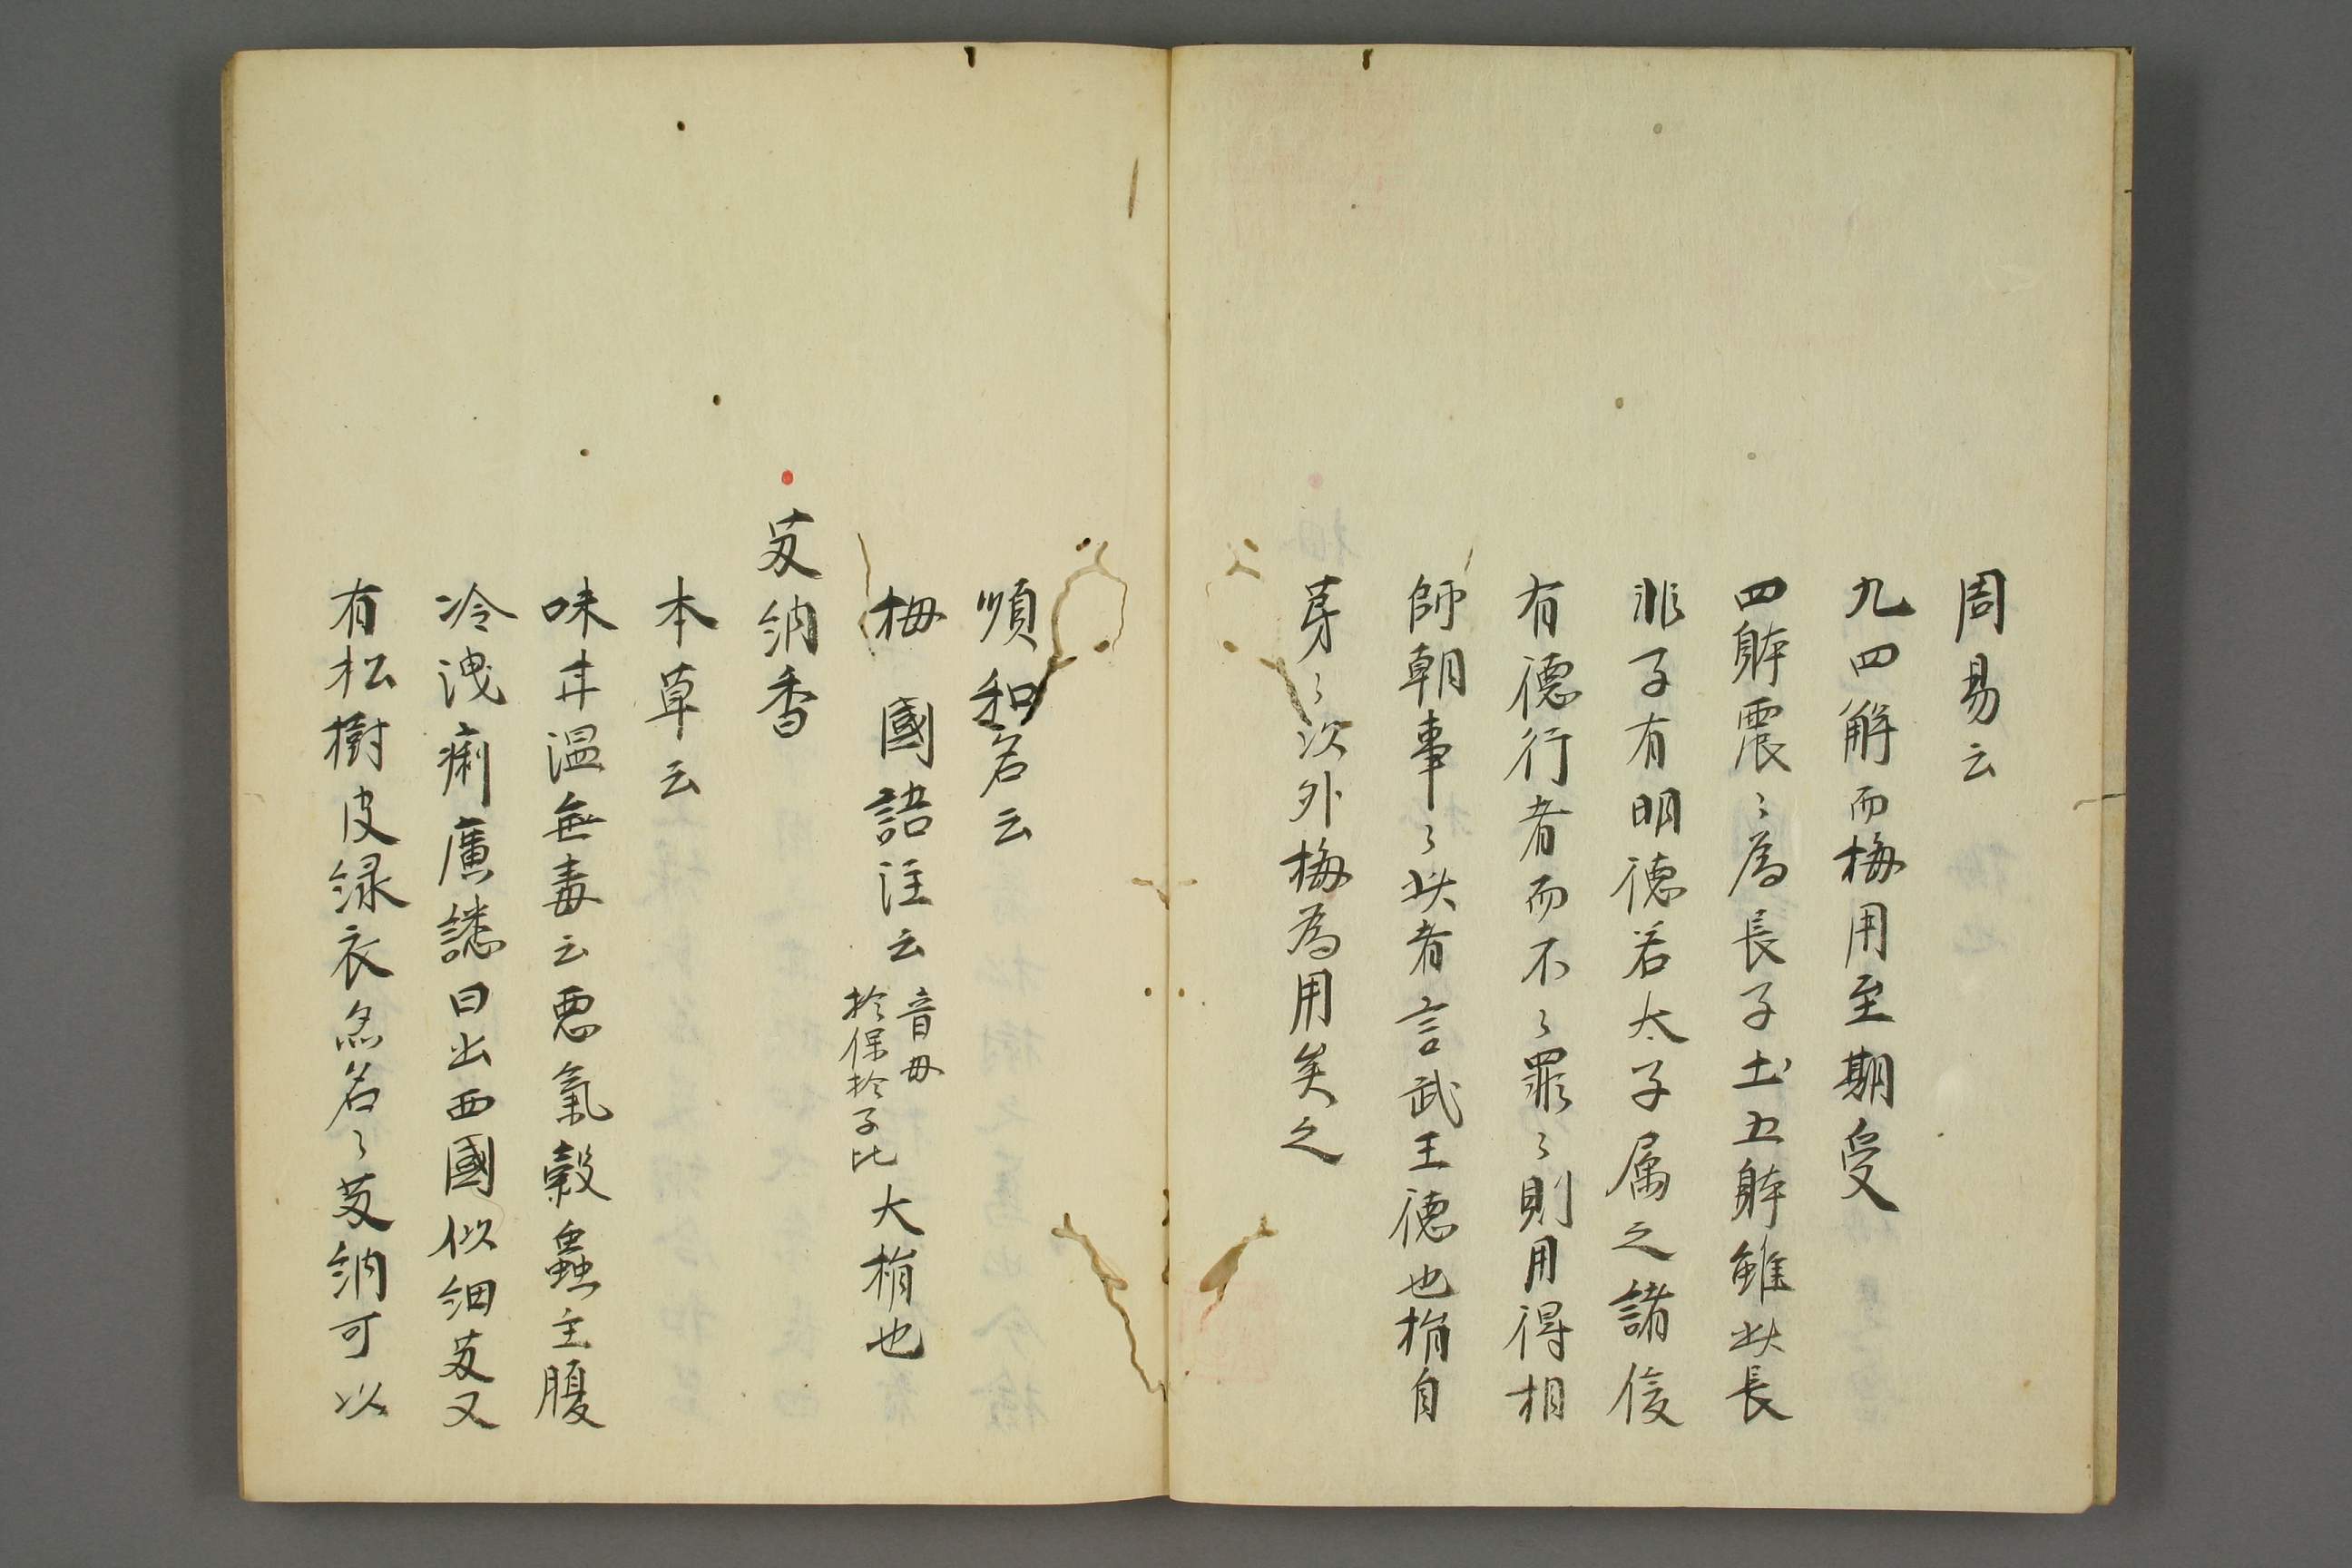 周易云
九四解而梅用至期受
四躰震〻為長子土五躰雖此長
非子有明德若太子属之諸侯
有德行者而不〻罪〻則用得相
師朝事〻此者言武王德也栂自
芽〻次外梅為用矣之
順和名云
栂 國語注云 音母 於保於子比 大栂也
芆納香
本草云
味甘温無毒云悪氣穀蟲主腹
冷洩痢廣誌曰出西國似細芆又
有松樹皮緑衣亦名〻芆納可以